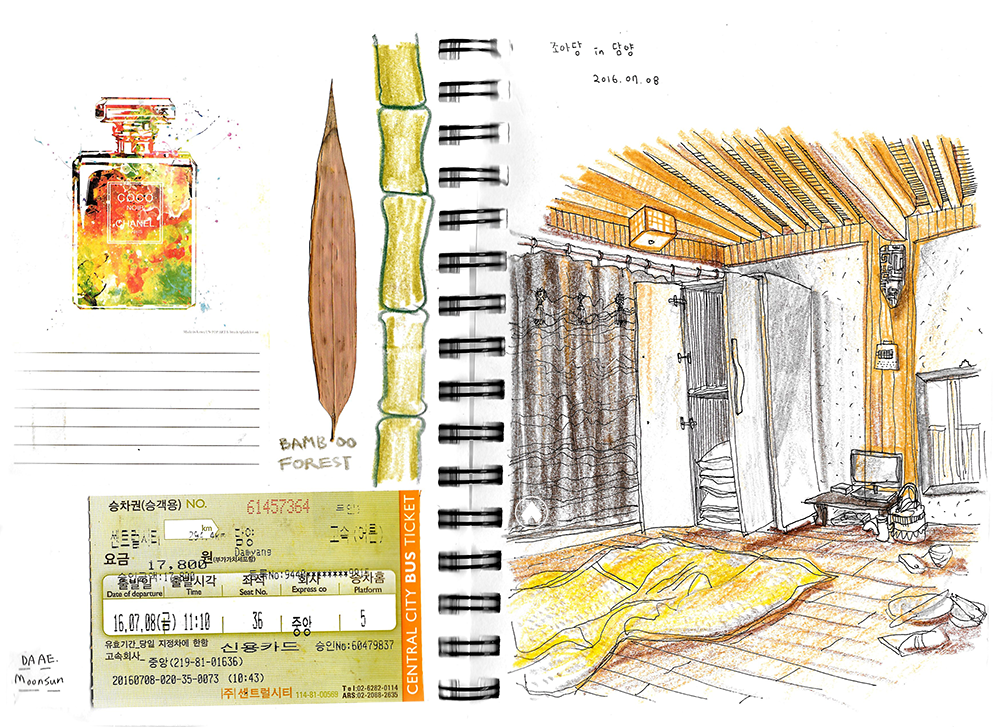 COCO
NOIR
CHANEL
PARIS
BAMBOO
FOREST
승차권(승객용) NO. 61457364
센트럴시티 km 담양 고속(어른)
Damyang
요금 17,800 원(부가가치세포함)
출발일 출발시각 좌석 회사 승차홈
Date of departure Time Seat No. Express co Platform
16.07.08(금) 11:10 36 중앙 5
유효기간_당일 지정차에 한함 신용카드 승인No:60479837
고속회사_ 중앙(219-81-01636)
20160708-020-35-0073 (10:43)
(주)센트럴시티 114-81-00569 Tel:02-6282-0114
ARS:02-2088-2635
CENTRAL CITY BUS TICKET
DAAE.
Moonsun
조아당 in 담양
2016.07.08